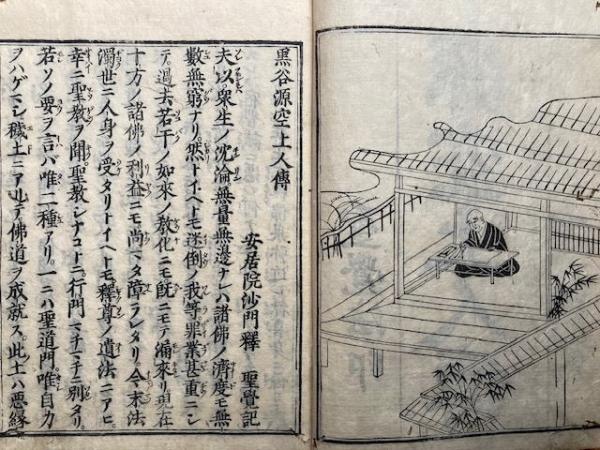 黒谷源空上人傳
安居院沙門釋 聖覺記
夫以衆生ノ沈淪無量無邊ナレハ諸佛ノ濟度モ無
數無窮ナリ。然トイヘトモ迷倒ノ我等罪業甚重ニシ
テ。過去若干ノ如來ノ教化ニモ既ニモテ漏來リ。現在
十方ノ諸佛ノ利益ニモ尚マタ障ランタリ。今末法
濁世ニ人身ヲ受タリトイヘトモ釋尊ノ遺法ニアヒ。
幸ニ聖教ヲ聞。聖教シナコトニ。行門マチマチニ別タリ。
若ソノ要ヲ言ハ唯二種アリ。一ニハ聖道門。唯自力
ヲハゲマシ穢土ニアリテ佛道ヲ成就ス。此土ハ悪縁